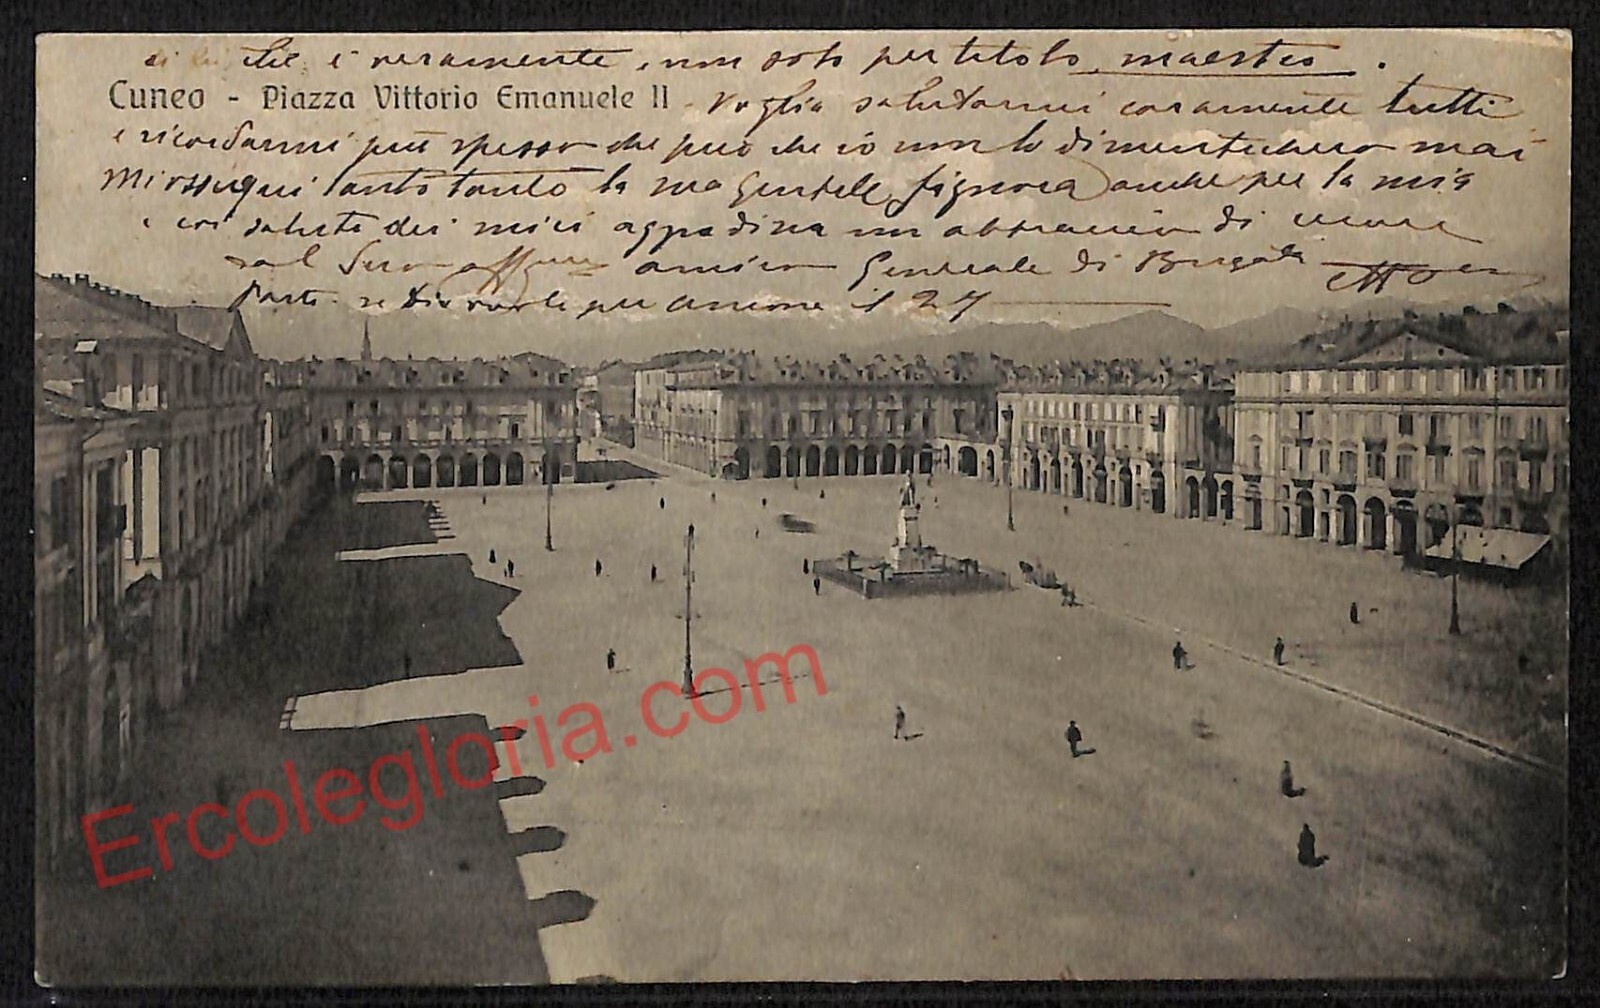 che è veramente, non solo per titolo, maestro.
Cuneo - Piazza Vittorio Emanuele II
Voglia salutarmi caramente tutti
e ricordarmi più spesso che può che io non lo dimenticherò mai
Mi ossequi tanto tanto la sua gentile Signora anche per la mia
e coi saluti dei miei aggradisca un abbraccio di cuore
dal Suo amico Generale di Brigata
Parto se Dio vuole per Ancona il 27
Ercolegloria.com